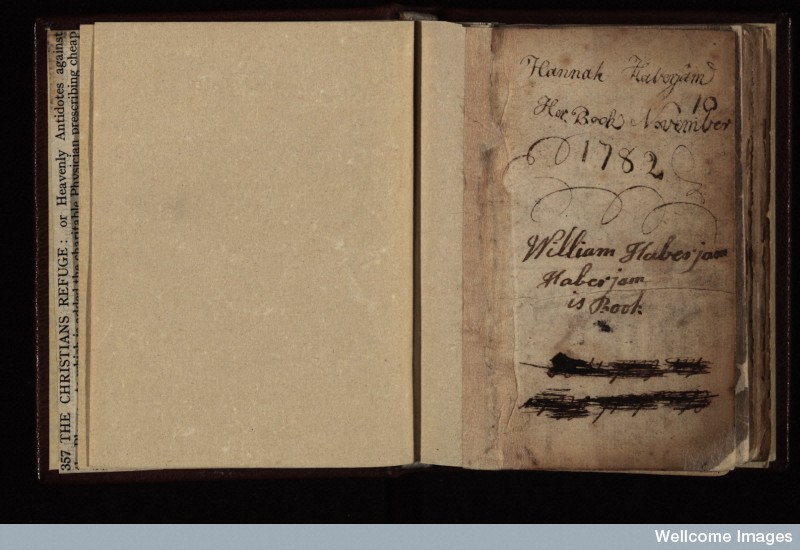 357 THE CHRISTIANS REFUGE: or Heavenly Antidotes against
the charitable Physician prescribing cheap
Hannah Haberjam
10
Her Book November
1782
William Haberjam
Haberjam
is Book
Wellcome Images